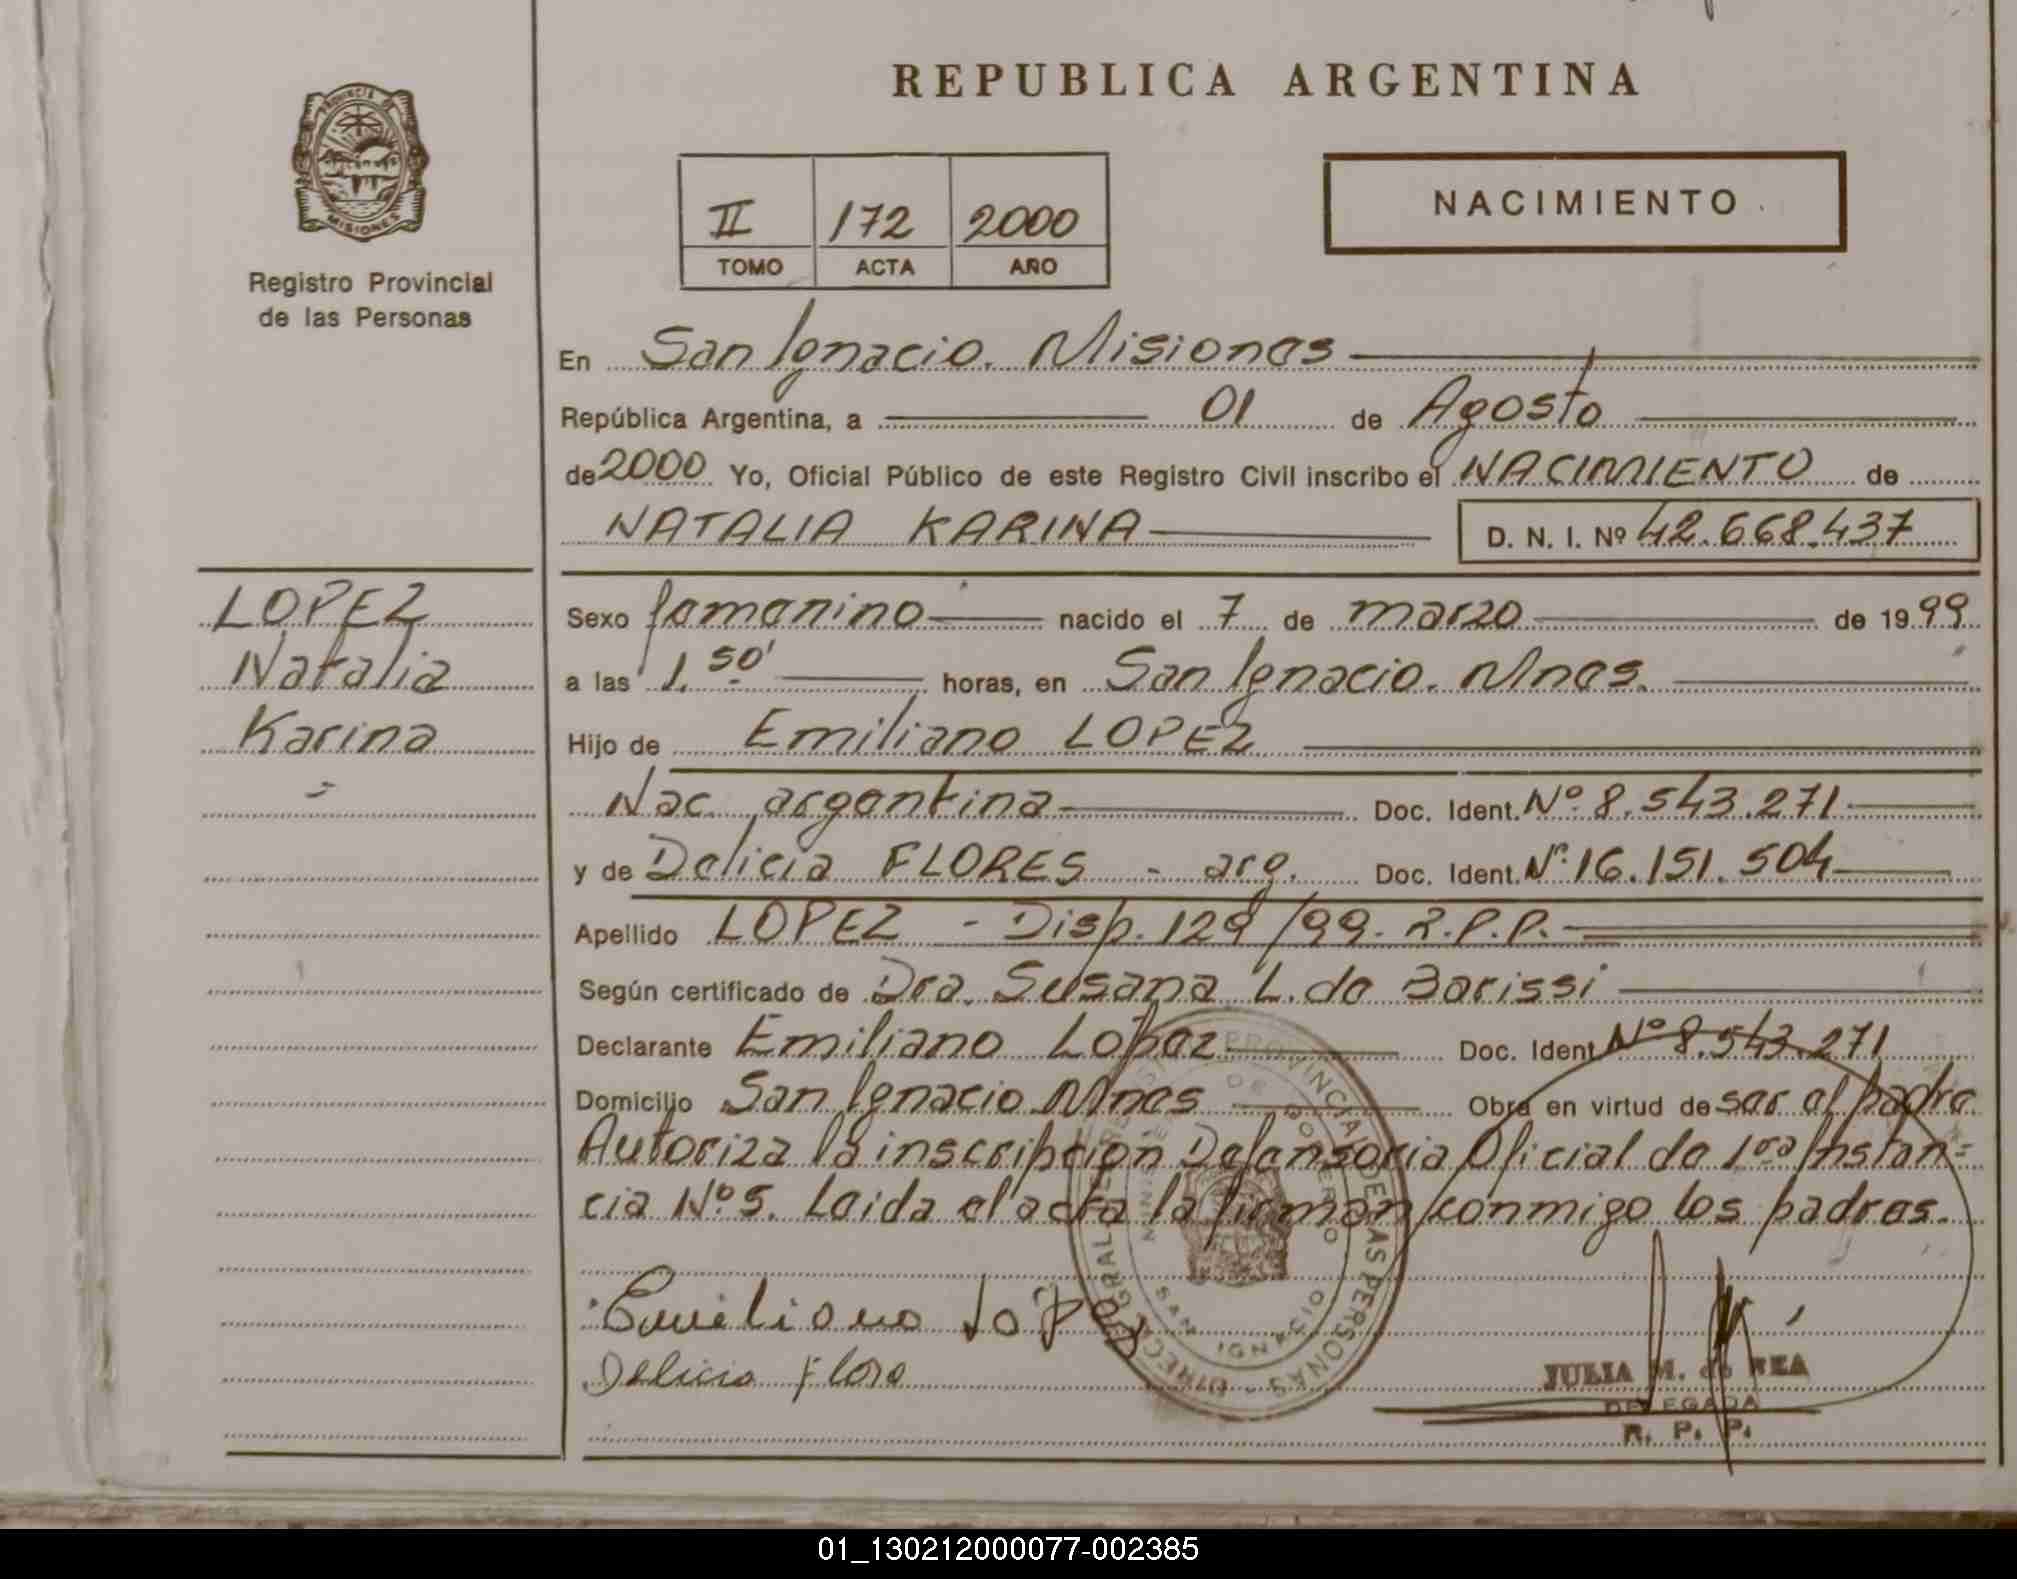 REPUBLICA ARGENTINA
PROVINCIA DE MISIONES
Registro Provincial
de las Personas
II 172 2000
TOMO ACTA AÑO
NACIMIENTO
En San Ignacio. Misiones
República Argentina, a 01 de Agosto
de 2000 Yo, Oficial Público de este Registro Civil inscribo el NACIMIENTO de
NATALIA KARINA D. N. I. Nº 42.668.437
LOPEZ
Natalia
Karina
Sexo femenino nacido el 7 de marzo de 1999
a las 1.50' horas, en San Ignacio. Mnes.
Hijo de Emiliano LOPEZ
Nac. argentina Doc. Ident. Nº 8.543.271
y de Delicia FLORES - arg. Doc. Ident. Nº 16.151.504
Apellido LOPEZ - Disp. 129/99. R.P.P.
Según certificado de Dra. Susana L. de Barissi
Declarante Emiliano Lopez Doc. Ident Nº 8.543.271
Domicilio San Ignacio Mnes Obra en virtud de ser el padre
Autoriza la inscripción Defensoria Oficial de 1era Instan=
cia Nº 5. Leida el acta la firman conmigo los padres.
Emiliano Lopez
Delicia Flore
PROVINCIAL DE LAS PERSONAS
MINISTERIO DE GOBIERNO
SAN IGNACIO
JULIA M. de REÁ
DELEGADA
R. P. P.
01_130212000077-002385